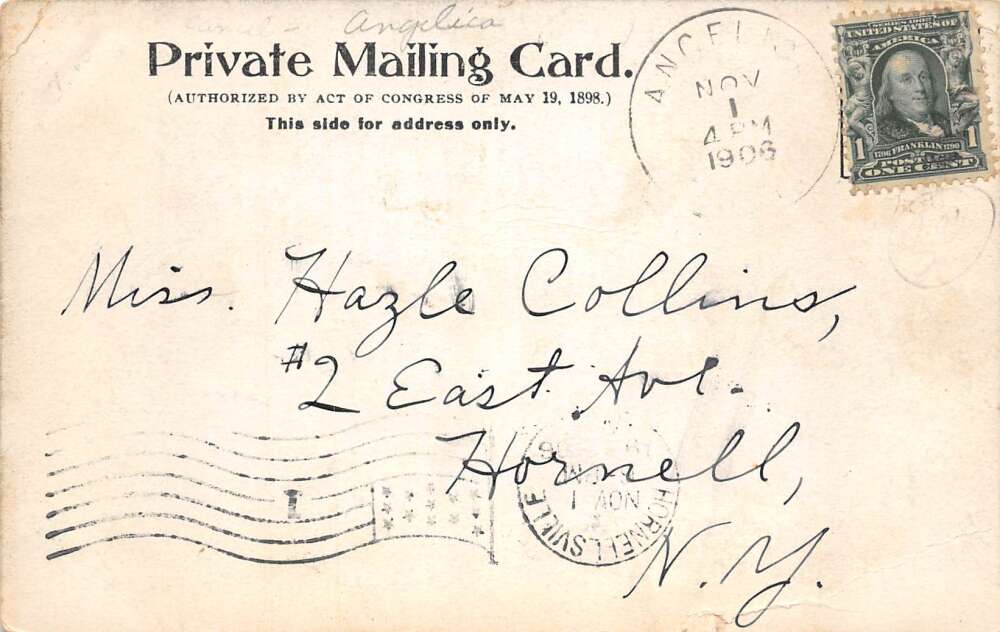 Angelica
Private Mailing Card.
(AUTHORIZED BY ACT OF CONGRESS OF MAY 19, 1898.)
This side for address only.
NOV
1
4 PM
1906
SERIES 1902
UNITED STATES OF
AMERICA
1706 FRANKLIN 1790
1 POSTAGE 1
ONE CENT
Miss. Hazle Collins,
#2 East Ave.
Hornell,
N.Y.
1
HORNELLSVILLE
NOV 1